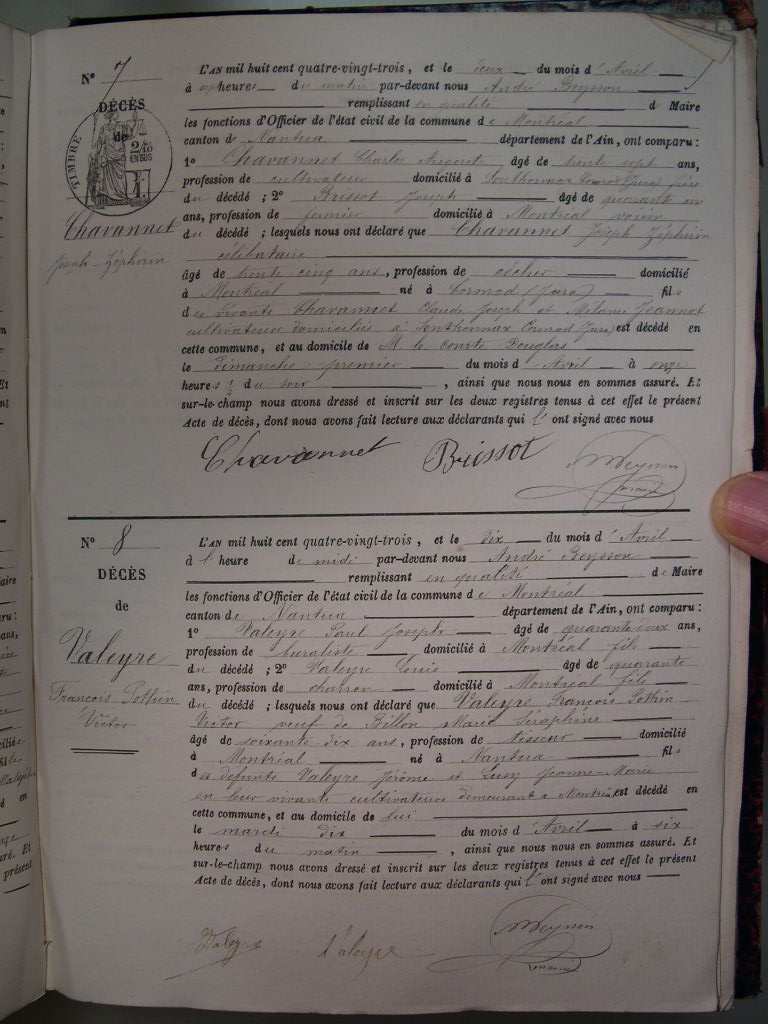 N° 7
DÉCÈS
de
TIMBRE
Chavannet
Joseph-Zéphirin
L'AN mil huit cent quatre-vingt-trois, et le deux du mois d'Avril
à heures du matin par-devant nous André Reysson
remplissant en qualité de Maire
les fonctions d'Officier de l'état civil de la commune de Montréal
canton de Nantua département de l'Ain, ont comparu :
1° Chavannet Charles August âgé de trente sept ans,
profession de cultivateur domicilié à Jura
du décédé ; 2° Brissot Joseph âgé de quarante un
ans, profession de fermier domicilié à Montréal voisin
du décédé ; lesquels nous ont déclaré que Chavannet Joseph Zéphirin
célibataire
âgé de trente cinq ans, profession de cocher domicilié
à Montréal né à Cormod (Jura) fils
de vivants Chavannet Claude Joseph et Mélanie Jeannet
cultivateurs domiciliés à (Jura) est décédé en
cette commune, et au domicile de M. le comte Douglas
le dimanche premier du mois d'Avril à onze
heures ½ du soir, ainsi que nous nous en sommes assuré. Et
sur-le-champ nous avons dressé et inscrit sur les deux registres tenus à cet effet le présent
Acte de décès, dont nous avons fait lecture aux déclarants qui l'ont signé avec nous
Chavannet Brissot
N° 8
DÉCÈS
de
Valeyre
François Pothin
Victor
L'AN mil huit cent quatre-vingt-trois, et le dix du mois d'Avril
à l'heure de midi par-devant nous André Reysson
remplissant en qualité de Maire
les fonctions d'Officier de l'état civil de la commune de Montréal
canton de Nantua département de l'Ain, ont comparu :
1° Valeyre Paul Joseph âgé de quarante deux ans,
profession de buraliste domicilié à Montréal fils
du décédé ; 2° Valeyre Louis âgé de quarante
ans, profession de charron domicilié à Montréal fils
du décédé ; lesquels nous ont déclaré que Valeyre François Pothin
Victor veuf de Billon Marie Séraphine
âgé de soixante dix ans, profession de tisseur domicilié
à Montréal né à Nantua fils
de défunts Valeyre Jérôme et Jeanne-Marie
en leur vivants cultivateurs demeurant à Montréal est décédé en
cette commune, et au domicile de lui
le mardi dix du mois d'Avril à six
heures du matin, ainsi que nous nous en sommes assuré. Et
sur-le-champ nous avons dressé et inscrit sur les deux registres tenus à cet effet le présent
Acte de décès, dont nous avons fait lecture aux déclarants qui l'ont signé avec nous
Valeyre Valeyre